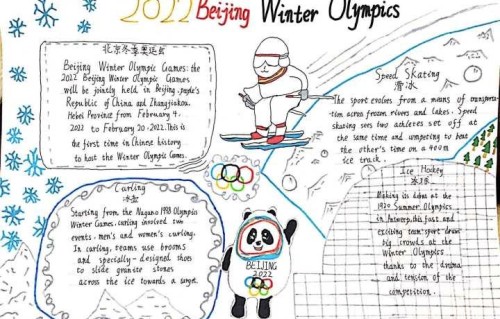 2022 Beijing Winter Olympics
北京冬季奥运会
Beijing Winter Olympic Games: the
2022 Beijing Winter Olympic Games
will be jointly held in Beijing, people's
Republic of China and Zhangjiakou.
Hebei Province from February 4.
2022 to February 20.2022.This is
the first time in Chinese history
to host the Winter Olympic Games.
Speed Skating
滑冰
The sport evolves from a means of transporta-
tion across frozen rivers and lakes. Speed
skating sees two athletes set off at
the same time and competing to beat
the other's time on a 400m
ice track.
Curling
冰壶
Starting from the Nagano 1998 Olympic
Winter Games, curling involved two
events, men's and women's curling.
In curling, teams use brooms
and specially-designed shoes
to slide granite stones
across the ice towards a target.
Ice Hockey
冰球
Making its debut at the
1920 Summer Olympics
in Antwerp, this fast and
exciting team sport draw
big crowds at the
Winter Olympics
thanks to the drama
and tension of the
competition.
BEIJING
2022